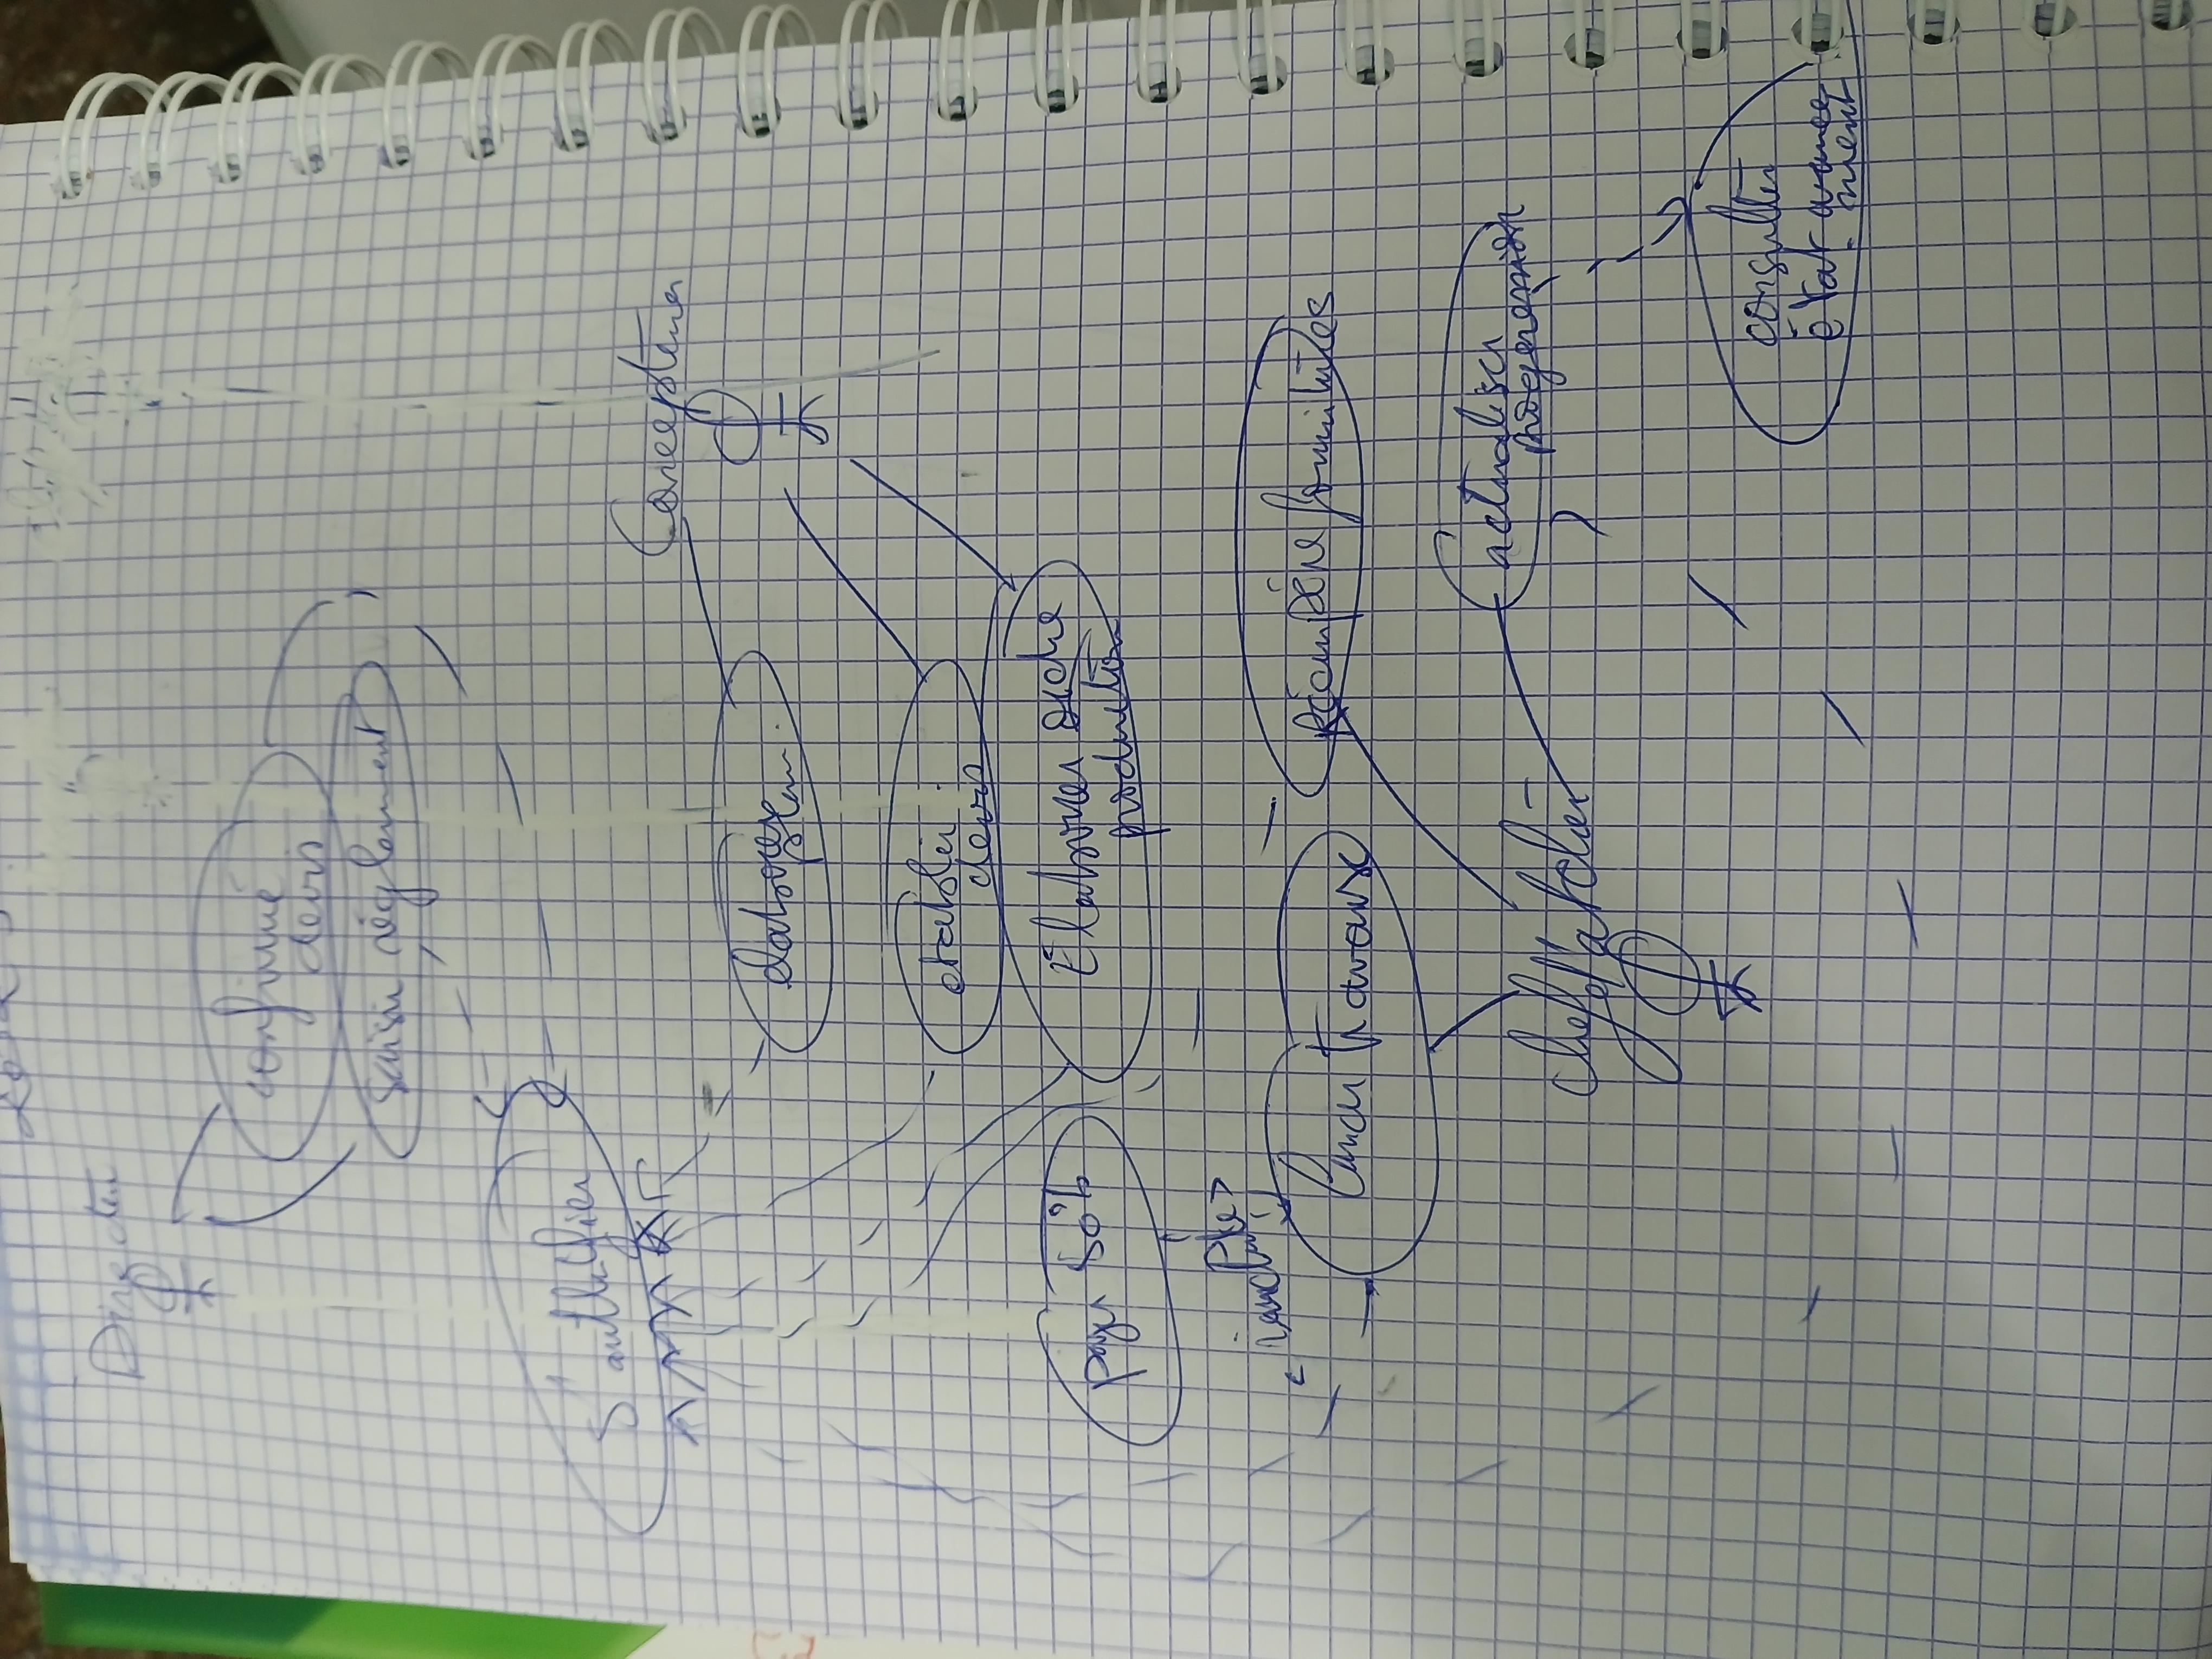 Directeur
confirmé
devis
saisir règlement
Concepteur
elaborer
plan
établir
devis
payer 50%
Elaborer ordre
production
<include>
lancer travaux
Récupère fournitures
actualiser
progression
chef d'atelier
consulter
état avance
ment